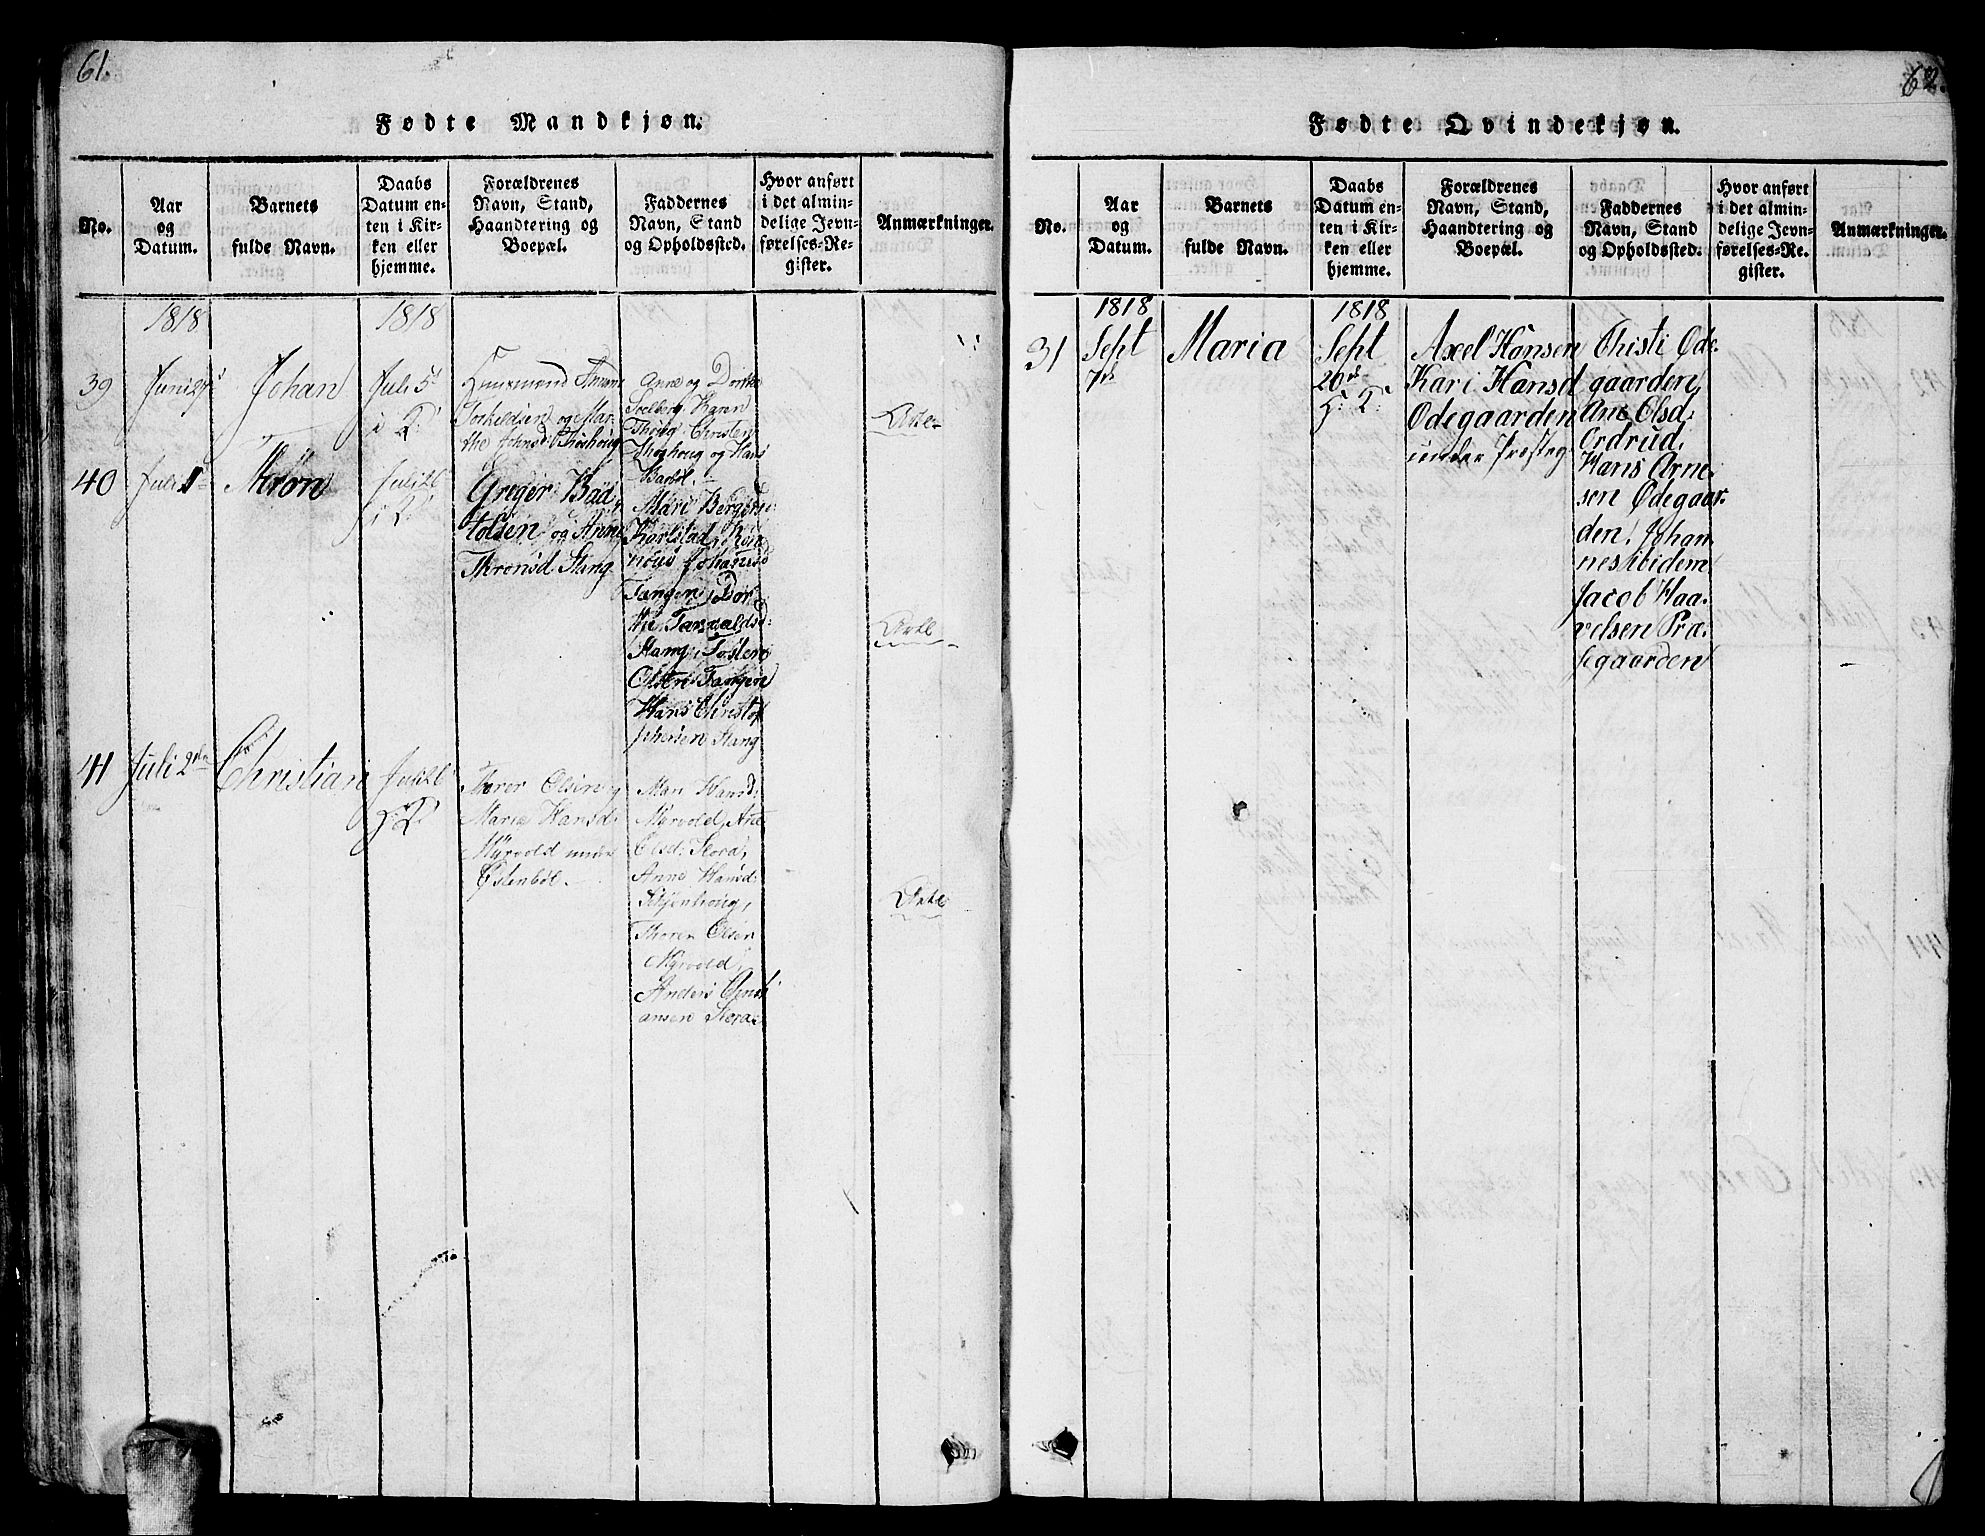 61.
Fødte Mandkjøn.
No.
Aar
og
Datum.
Barnets
fulde Navn.
Daabs
Datum en-
ten i Kir-
ken eller
hjemme.
Forældrenes
Navn, Stand,
Haandtering og
Boepæl.
Faddernes
Navn, Stand
og Opholdssted.
Hvor anført
i det almin-
delige Jevn-
førelses-Re-
gister.
Anmærkninger.
1818
1818
39
Juni 27
Johan
Juli 5
i K:
Huusmand
Torkeldsen og Mar-
the Johnsd:
Anne og Dorthe
Soelberg Karen
Christen
og Hans
40
Juli 1
Thron
Juli 26
i K:
Greger Bad
tolsen og Anne
Thronsd Stang
Mari Bergers
Karlstad,
Johansd
Tangen, Dor
the Tarvaldsd:
Stang, Tosten
Olsen Tangen
Hans Christof
phersen Stang
41
Juli 2den
Christian
Juli 26
H: K:
Thorer Olsen og
Maria Hansd:
Myrvold under
Østenbøl.
Mari Hansd:
Myrvold, Ane
Olsd: Slora,
Anne Hansd:
Thoren Olsen
Myrvold,
Anders Christi
ansen Slora
62.
Fødte Qvindekjøn.
No.
Aar
og
Datum.
Barnets
fulde Navn.
Daabs
Datum en-
ten i Kir-
ken eller
hjemme.
Forældrenes
Navn, Stand,
Haandtering og
Boepæl.
Faddernes
Navn, Stand
og Opholdssted.
Hvor anført
i det almin-
delige Jevn-
førelses-Re-
gister.
Anmærkninger.
1818
1818
31
Sept
7de
Maria
Sept
20de
H: K:
Axel Hansen
Kari Hansd
Ødegaarden
under Presteg
Christi Øde-
gaarden,
Ane Olsd:
Ordrud,
Hans Arne-
sen Ødegaar-
den, Johan-
nes ibidem
Jacob Haa-
velsen Præ-
stegaarden